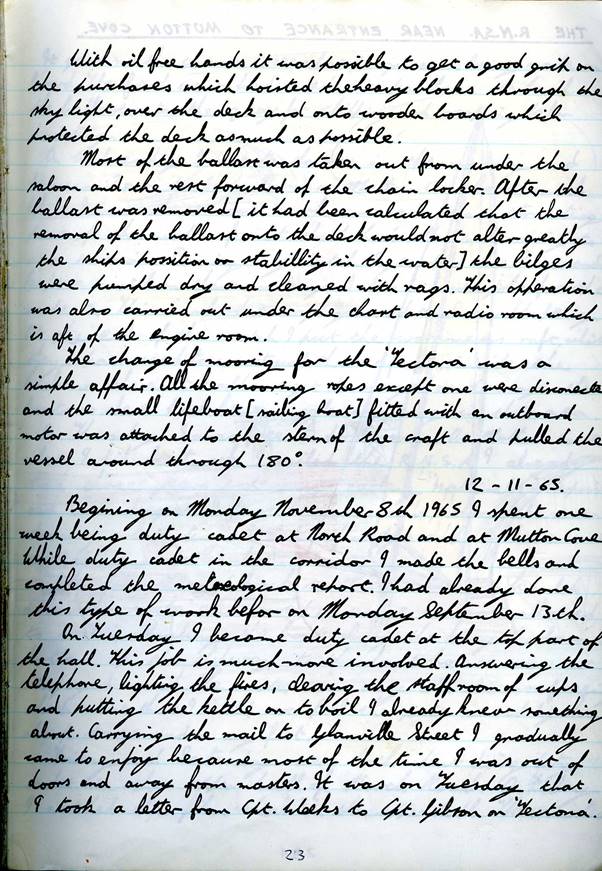 THE R.N.S.A. NEAR ENTRANCE TO MUTTON COVE.
With oil free hands it was possible to get a good grip on
the purchases which hoisted the heavy blocks through the
sky light, over the deck and onto wooden boards which
protected the deck as much as possible.
Most of the ballast was taken out from under the
saloon and the rest forward of the chain locker. After the
ballast was removed [ it had been calculated that the
removal of the ballast onto the deck would not alter greatly
the ships possition or stabillity in the water ] the bilges
were pumped dry and cleaned with rags. This opperation
was also carried out under the chart and radio room which
is aft of the engine room.
The change of mooring for the 'Tectona' was a
simple affair. All the mooring ropes except one were disconecte
and the small lifeboat [ sailing boat ] fitted with an outboard
motor was attached to the stern of the craft and pulled the
vessel around through 180°.
12 - 11 - 65.
Begining on Monday November 8th 1965 I spent one
week being duty cadet at North Road and at Mutton Cove
While duty cadet in the corridor I made the bells and
completed the meterological report. I had already done
this type of work befor on Monday September 13th.
On Tuesday I became duty cadet at the top part of
the hall. This job is much more involved. Answering the
telephone, lighting the fires, clearing the staff room of cups
and putting the kettle on to boil I already knew something
about. Carrying the mail to Glanville Street I gradually
came to enjoy because most of the time I was out of
doors and away from masters. It was on Tuesday that
I took a letter from Cpt. Weeks to Cpt. Gibson on 'Tectona'.
23